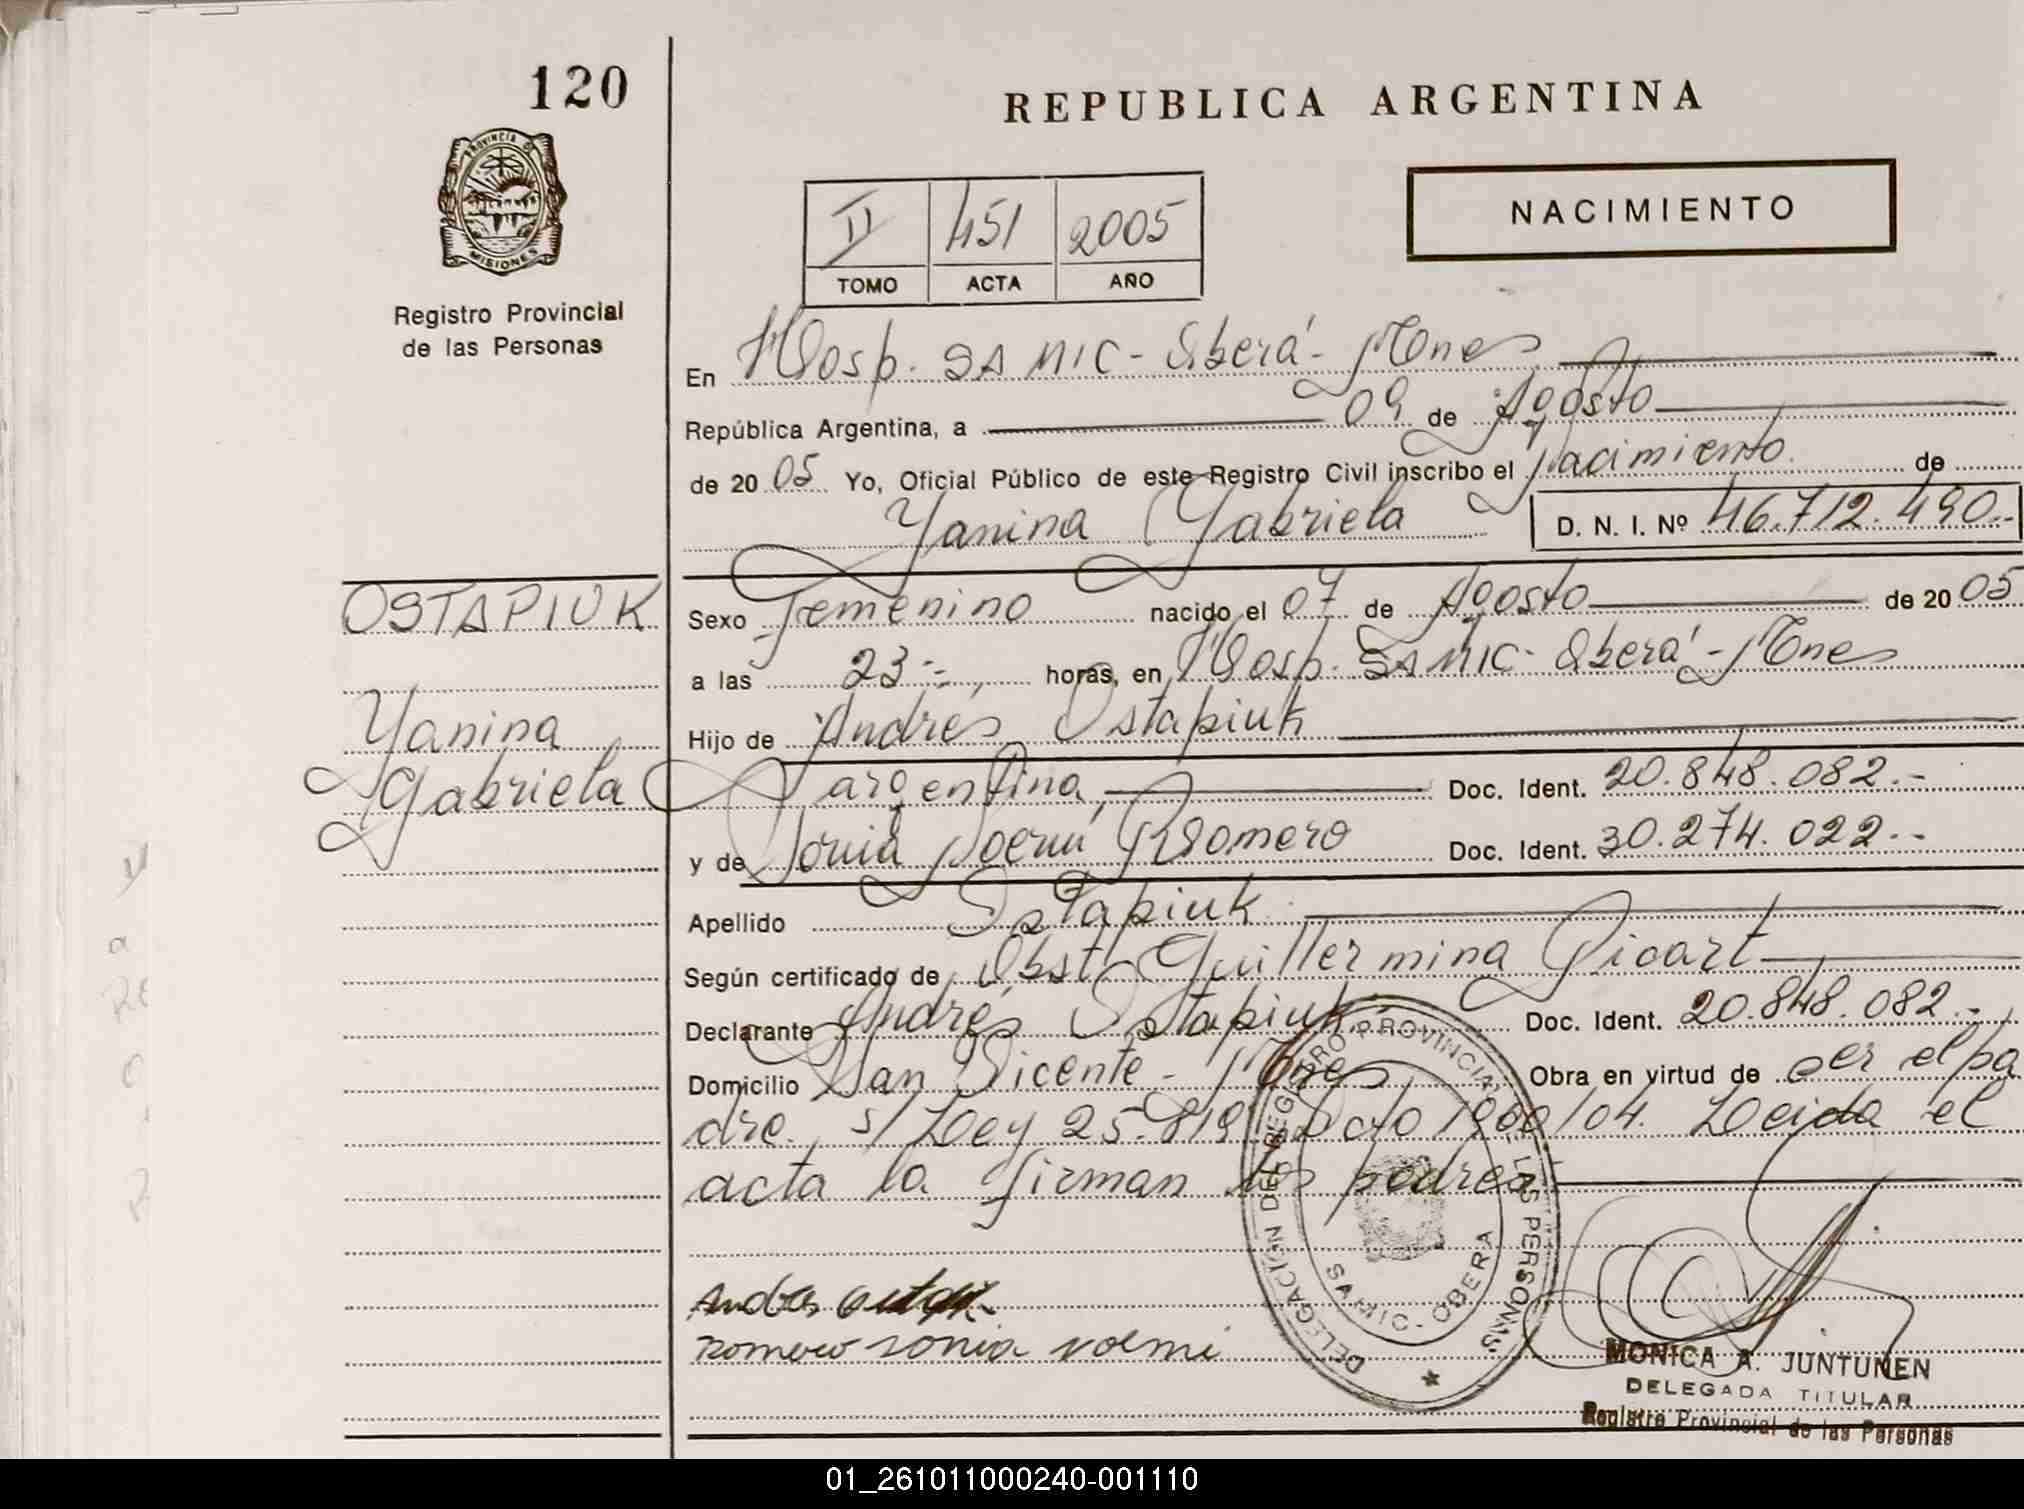 120
REPUBLICA ARGENTINA
PROVINCIA DE
MISIONES
Registro Provincial
de las Personas
II 451 2005
TOMO ACTA AÑO
NACIMIENTO
En Hosp. SAMIC - Oberá - Mnes
República Argentina, a 09 de Agosto
de 20 05 Yo, Oficial Público de este Registro Civil inscribo el Nacimiento de
Yanina Gabriela D. N. I. Nº 46.712.490.-
OSTAPIUK
Yanina
Gabriela
Sexo Femenino nacido el 07 de Agosto de 20 05
a las 23 horas, en Hosp. SAMIC - Oberá - Mnes
Hijo de Andrés Ostapiuk
argentina, Doc. Ident. 20.848.082.-
y de Sonia Noemí Romero Doc. Ident. 30.274.022.-
Apellido Ostapiuk
Según certificado de Obst. Guillermina Picart
Declarante Andrés Ostapiuk Doc. Ident. 20.848.082.-
Domicilio San Vicente - Mnes Obra en virtud de ser el pa
dre. s/ Ley 25.819 Dcto 1900/04. Leida el
acta la firman los padres
DELEGACIÓN DEL REGISTRO PROVINCIAL DE LAS PERSONAS
SAMIC - OBERA
Andres
romero sonia noemi
MONICA A. JUNTUNEN
DELEGADA TITULAR
Registro Provincial de las Personas
01_261011000240-001110